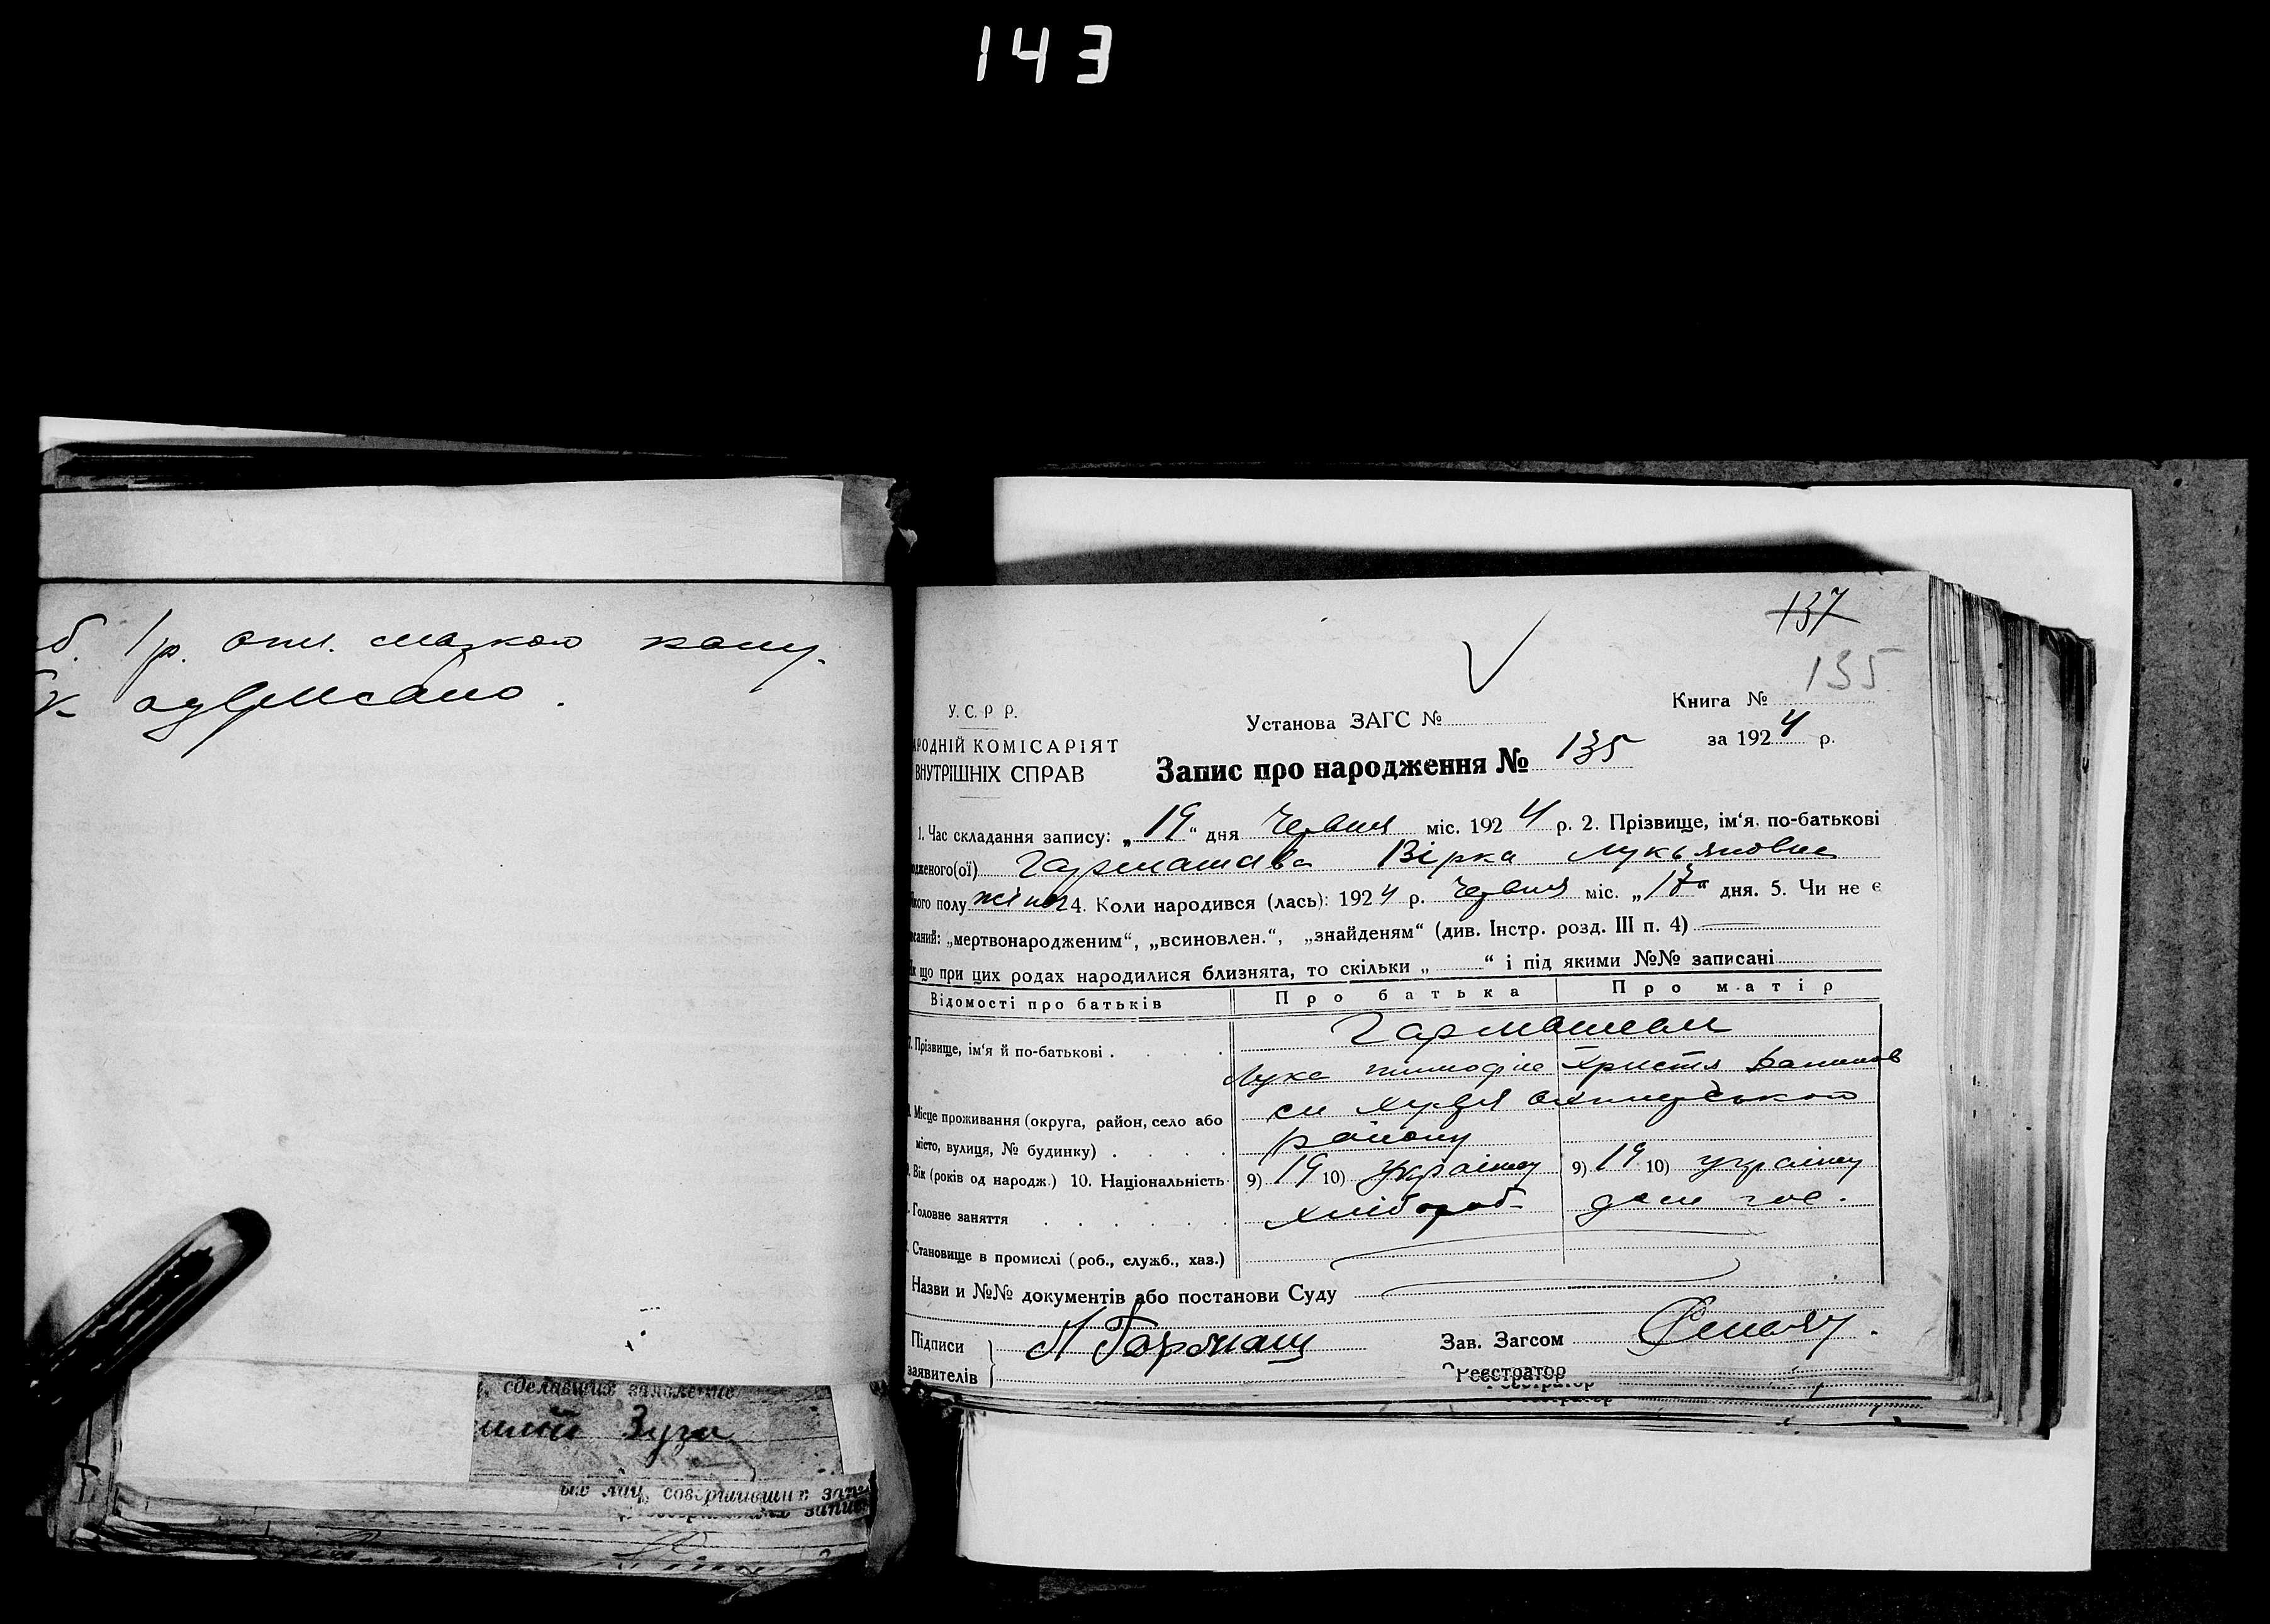 143
1р.
одержано.
сделавших заявление
Зуза
их лиц, совершивших запи
137
135
У.С.Р Р.
АРОДНІЙ КОМІСАРІЯТ
ВНУТРІШНІХ СПРАВ
Установа ЗАГС №
Книга №
за 1924 р.
Запис про народження № 135
1. Час складання запису: „19“ дня Червня міс. 1924 р. 2. Прізвище, ім‘я. по-батькові
одженого(ої) Гармашева Вірка Лукьяновна
кого полу жіноч 4. Коли народився (лась): 1924 р. Червня міс. „17“ дня. 5. Чи не є
исаний: „мертвонародженим“, „всиновлен.“, „знайденям“ (див. Інстр. розд. III п. 4)
Як що при цих родах народилися близнята, то скільки „ “ і під якими №№ записані
Відомості про батьків Про батька Про матір
7. Прізвище, ім‘я й по-батькові .
Гармашеви
Лука тимофіе Христя
8. Місце проживання (округа, район, село або
місто, вулиця, № будинку) .
району
9. Вік (років од народж.) 10. Національність 9) 19 10) україну 9) 19 10) україну
Головне заняття хлібороб дом гос.
Становище в промислі (роб., служб., хаз.)
Назви и №№ документів або постанови Суду
Підписи
заявителів
Л Гармаш
Зав. Загсом
Реєстратор